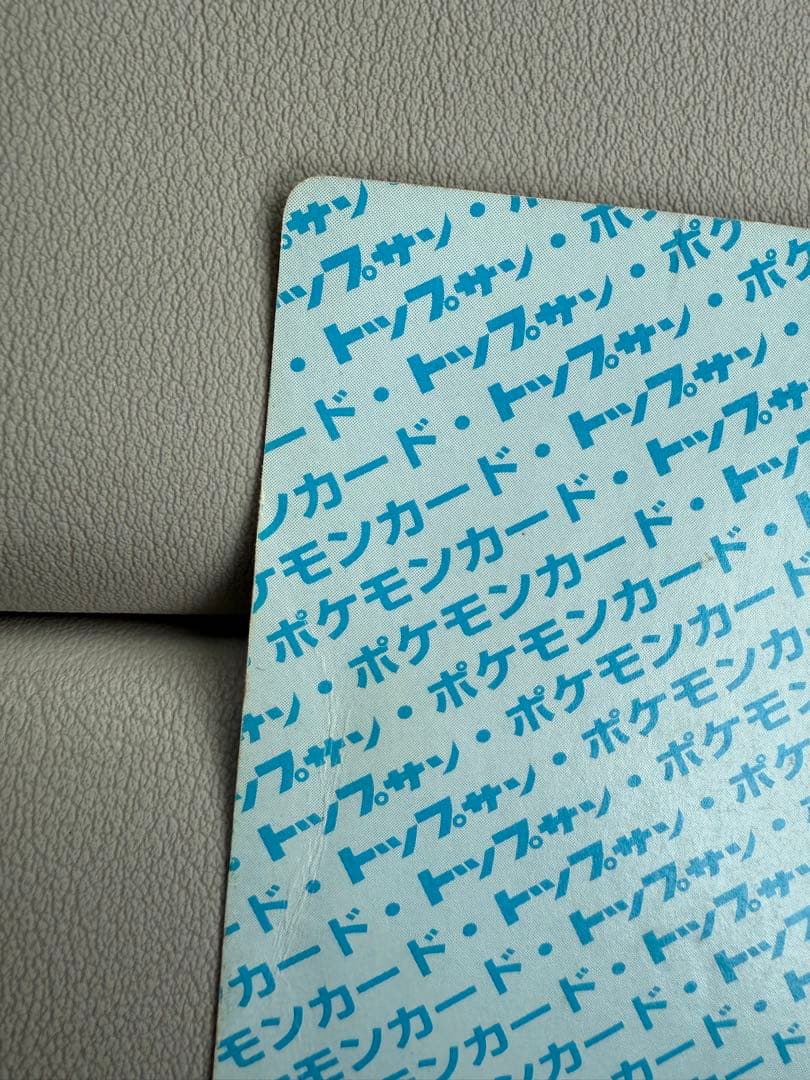 サン
ップサン・
・トップサン・ポケ
ード・トップサン・ポケ
ンカード・トップサン・ポケ
ケモンカード・トップサン・
ポケモンカード・トップサ
サン・ポケモンカード・トップ
ップサン・ポケモンカード・
トップサン・ポケモンカード
・トップサン・ポケモンカー
ード・トップサン・ポケモンカ
カード・トップサン・ポケモン
モンカード・トップサン・ポケ
モンカード・トップサン・
ンカード・トップサ
カード・トップ
ード・ト